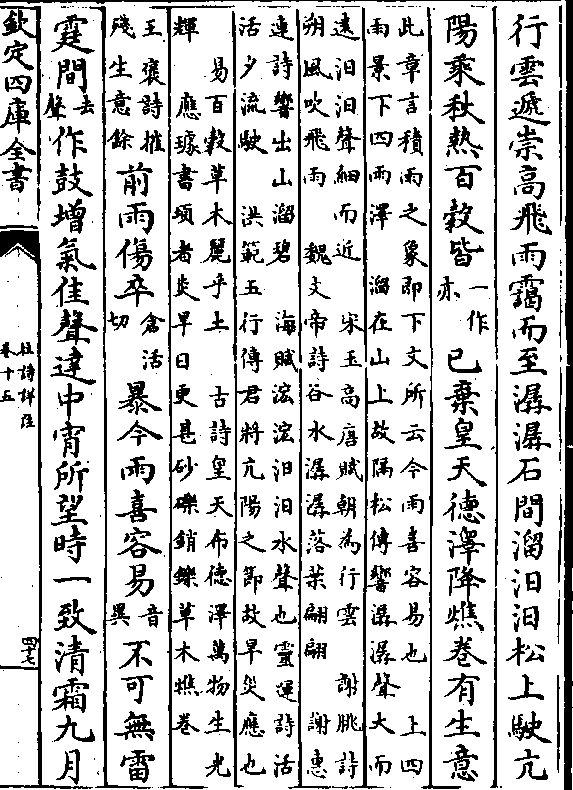 行雲遞崇高飛雨靄而至潺潺石間溜汨汨松上駛亢
陽乘秋熱百穀皆一作亦已棄皇天德澤降燋卷有生意
此章言積雨之象即下文所云今雨喜容易也　上四
雨景下四雨澤　溜在山上故隔松傳響潺潺聲大而
遠汨汨聲細而近　宋玉高唐賦朝為行雲　謝朓詩
朔風吹飛雨　魏文帝詩谷水潺潺落葉翩翩　謝惠
連詩響出山溜碧　海賦浤浤汨汨水聲也靈運詩活
活夕流駛　洪範五行傳君將亢陽之節故旱災應也
易百穀草木麗乎土　古詩皇天布德澤萬物生光
輝　應璩書頃者炎旱日更甚砂礫銷鑠草木燋卷
王褒詩摧殘生意餘前雨傷卒倉活切暴今雨喜容易音異不可無雷
霆間去聲作鼓增氣佳聲達中宵所望時一致清霜九月
欽定四庫全書
杜詩詳註
卷十五
四十七